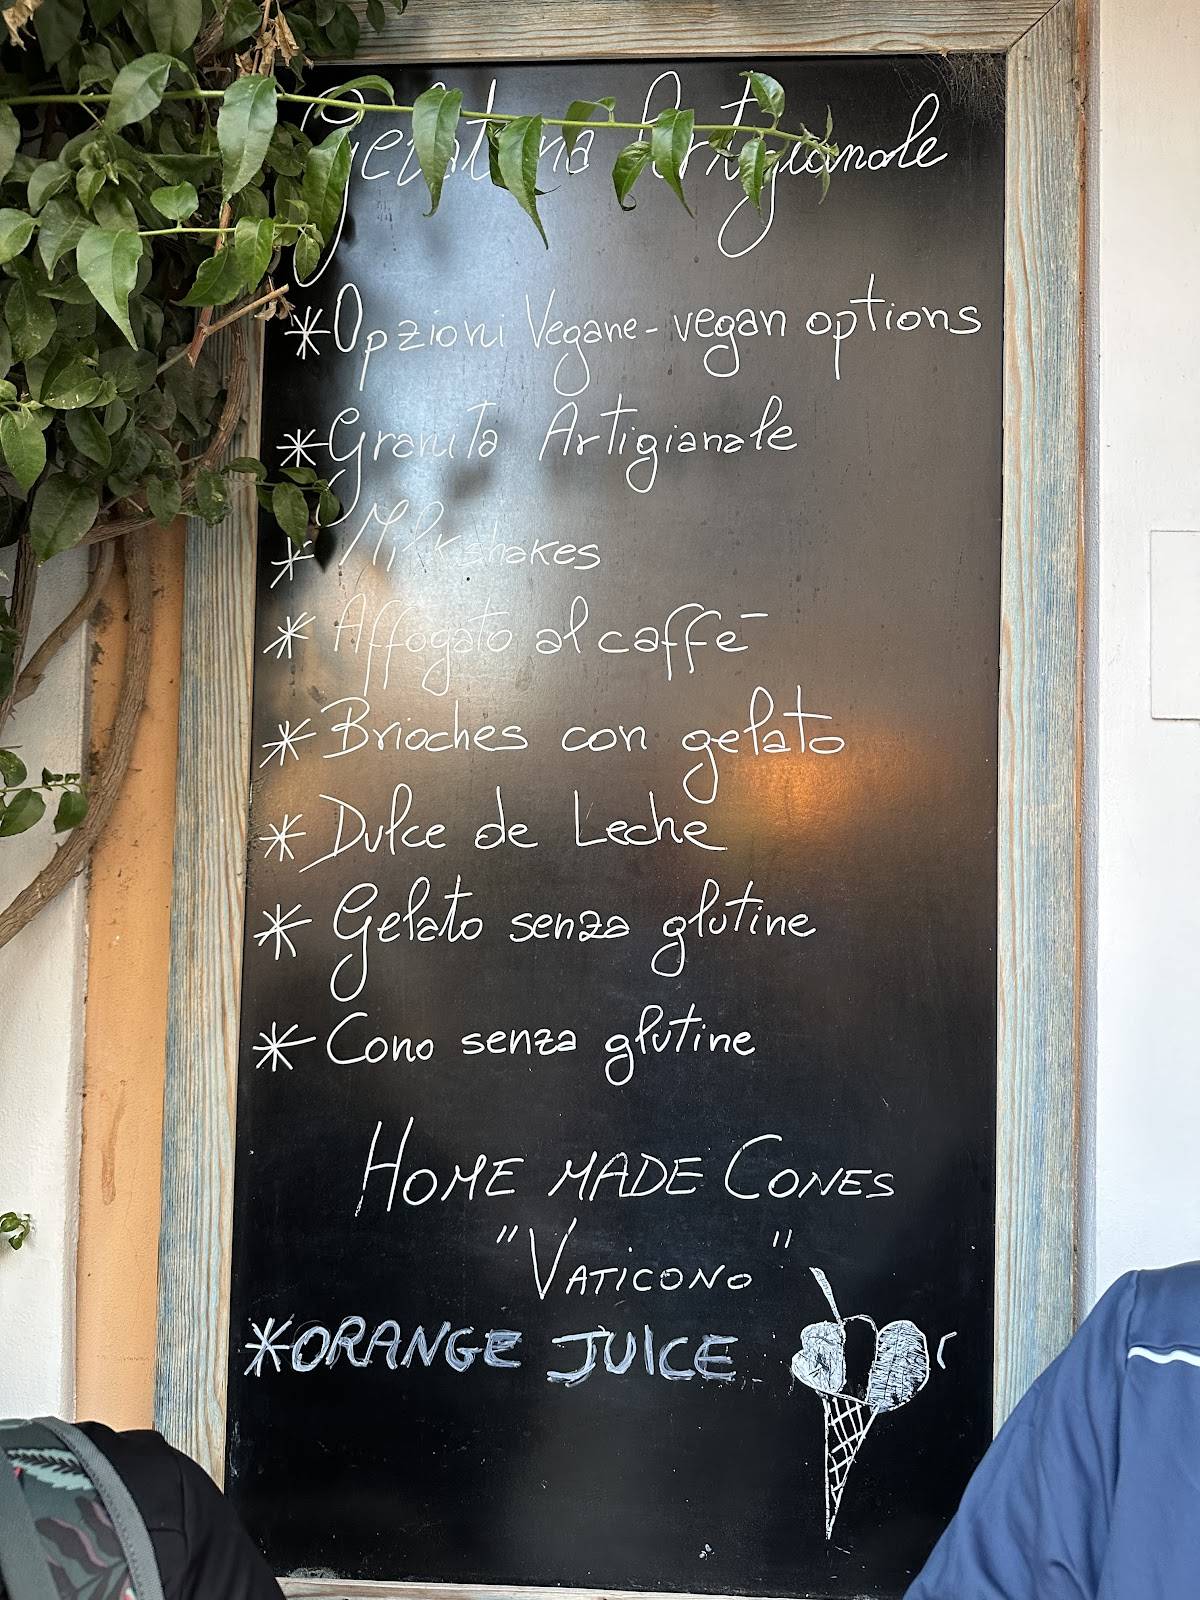 Gelateria Artigianale
*Opzioni Vegane - vegan options
*Granita Artigianale
* Milkshakes
* Affogato al caffē
*Brioches con gelato
*Dulce de Leche
* Gelato senza glutine
* Cono senza glutine
HOME MADE CONES
"VATICONO"
*ORANGE JUICE